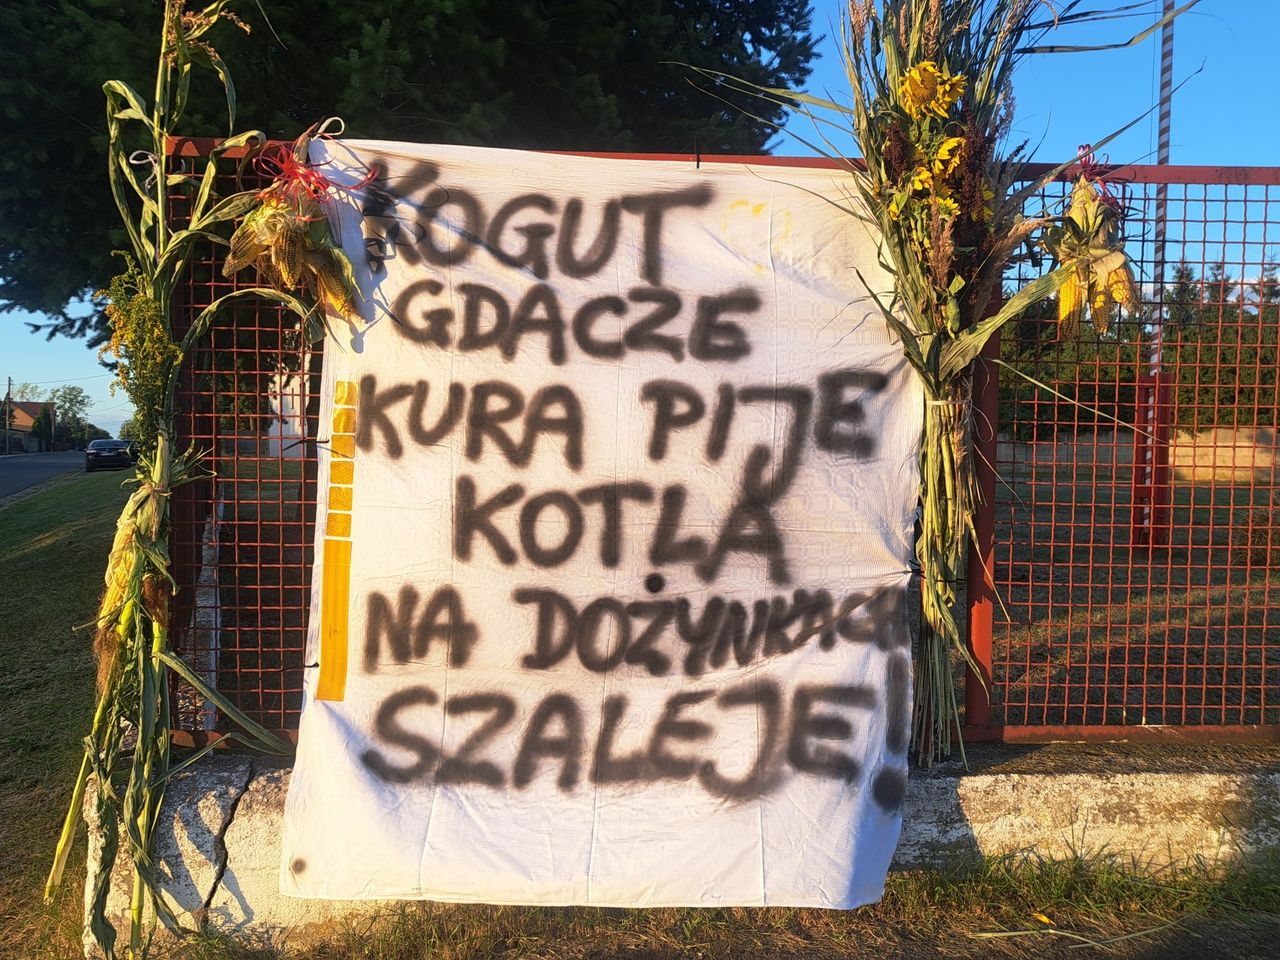 KOGUT
GDACZE
KURA PIJE
KOTLA
NA DOŻYNKACH
SZALEJE!